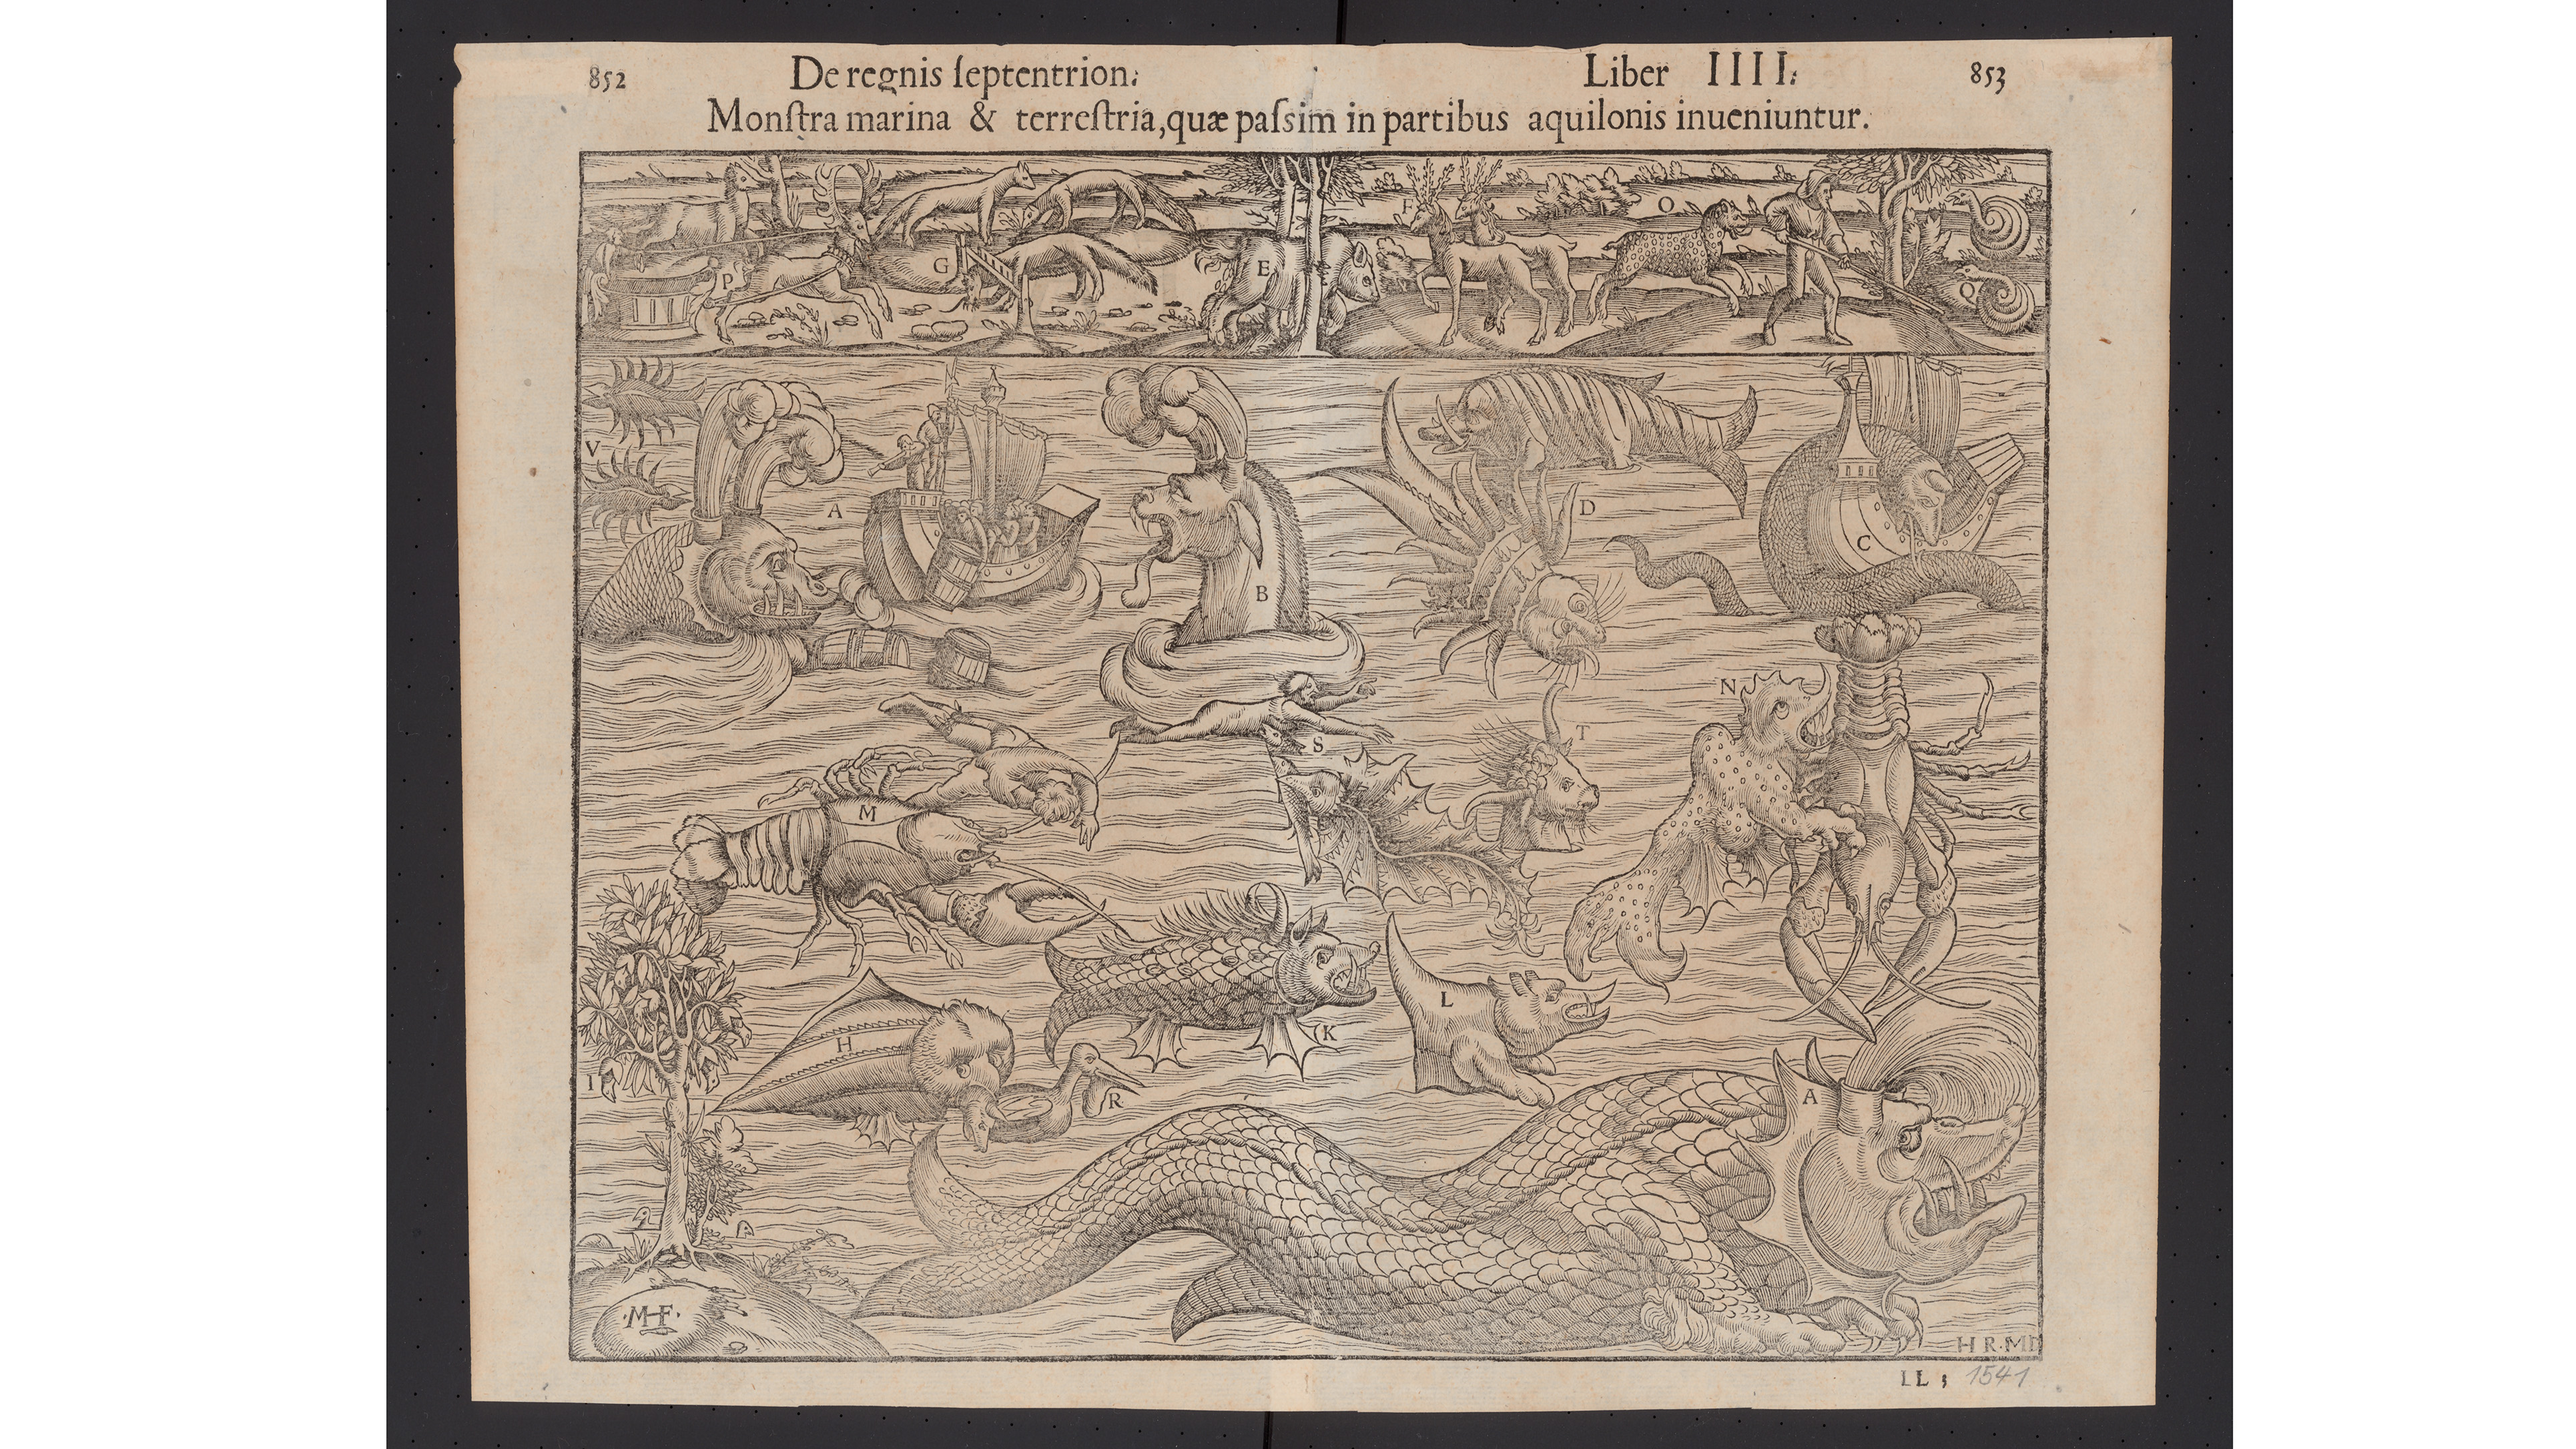 852 De regnis ſeptentrion. Liber IIII. 853
Monſtra marina & terreſtria, quæ paſsim in partibus aquilonis inueniuntur.
F O
P G E Q
V
A D
C
B
N
S T
M
L
H K
I R A
MHF
HR·MD
LL 3 1541